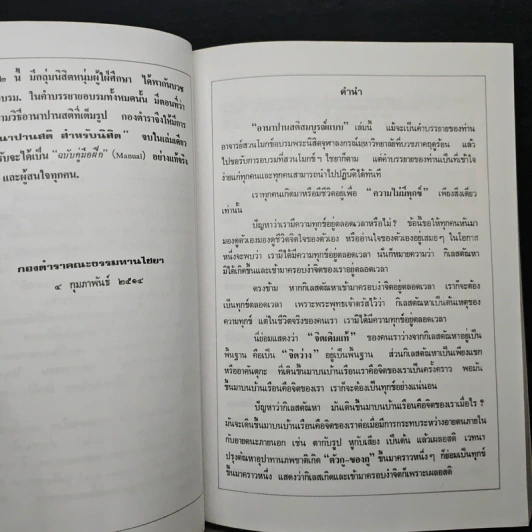 ๒ นี้ มีกลุ่มนิสิตหนุ่มผู้ใฝ่ศึกษา ได้พากันบวช
อบรม. ในคำบรรยายอบรมทั้งหมดนั้น มีตอนที่ว่า
ามวิธีอานาปานสติที่เต็มรูป กองตำราจึงให้มีการ
นาปานสติ สำหรับนิสิต" จบในเล่มเดียว
รับจะได้เป็น "ฉบับคู่มือฝึก" (Manual) อย่างแท้จริง
และผู้สนใจทุกคน.
กองตำราคณะธรรมทานไชยา
๔ กุมภาพันธ์ ๒๕๑๔
คำนำ
"อานาปานสติสมบูรณ์แบบ" เล่มนี้ แม้จะเป็นคำบรรยายของท่าน
อาจารย์สวนโมกข์อบรมพระนิสิตจุฬาลงกรณ์มหาวิทยาลัยที่บวชภาคฤดูร้อน แล้ว
ไปขอรับการอบรมที่สวนโมกข์ฯ ไชยาก็ตาม แต่คำบรรยายของท่านเป็นที่เข้าใจ
ง่ายแก่ทุกคนและทุกคนสามารถนำไปปฏิบัติได้ทันที
เราทุกคนเกิดมาหรือมีชีวิตอยู่เพื่อ "ความไม่มีทุกข์" เพียงสิ่งเดียว
เท่านั้น
ปัญหาว่าเรามีความทุกข์อยู่ตลอดเวลาหรือไม่? ข้อนี้ขอให้ทุกคนหันมา
มองดูตัวเองมองดูชีวิตจิตใจของตัวเอง หรืออ่านใจของตัวเองอยู่เสมอๆ ในโอกาส
หนึ่งจะพบว่า เรามิได้มีความทุกข์อยู่ตลอดเวลา นั่นก็หมายความว่า กิเลสตัณหา
มิได้เกิดขึ้นและเข้ามาครอบงำจิตของเราอยู่ตลอดเวลา
ตรงข้าม หากกิเลสตัณหาเข้ามาครอบงำจิตอยู่ตลอดเวลา เราก็จะต้อง
เป็นทุกข์ตลอดเวลา เพราะพระพุทธเจ้าตรัสไว้ว่า กิเลสตัณหาเป็นต้นเหตุของ
ความทุกข์ แต่ในชีวิตจริงของคนเรา เรามิได้มีความทุกข์อยู่ตลอดเวลา
นี่ย่อมแสดงว่า "จิตเดิมแท้" ของคนเราว่างจากกิเลสตัณหาอยู่เป็น
พื้นฐาน คือเป็น "จิตว่าง" อยู่เป็นพื้นฐาน ส่วนกิเลสตัณหาเป็นเพียงแขก
หรืออาคันตุกะ ที่เดินขึ้นมาบนบ้านเรือนเราคือจิตของเราเป็นครั้งคราว พอมัน
ขึ้นมาบนบ้านเรือนคือจิตของเรา เราก็จะต้องเป็นทุกข์อย่างแน่นอน
ปัญหาว่ากิเลสตัณหา มันเดินขึ้นมาบนบ้านเรือนคือจิตของเราเมื่อไร?
มันจะเดินขึ้นมาบนบ้านเรือนคือจิตของเราต่อเมื่อมีการกระทบระหว่างอายตนะภายใน
กับอายตนะภายนอก เช่น ตากับรูป หูกับเสียง เป็นต้น แล้วเผลอสติ เวทนา
ปรุงตัณหาอุปาทานภพชาติเกิด "ตัวกู-ของกู" ขึ้นมาคราวหนึ่งๆ ก็ย่อมเป็นทุกข์
ขึ้นมาคราวหนึ่ง แสดงว่ากิเลสเกิดและเข้ามาครอบงำจิตก็เพราะเผลอสติ